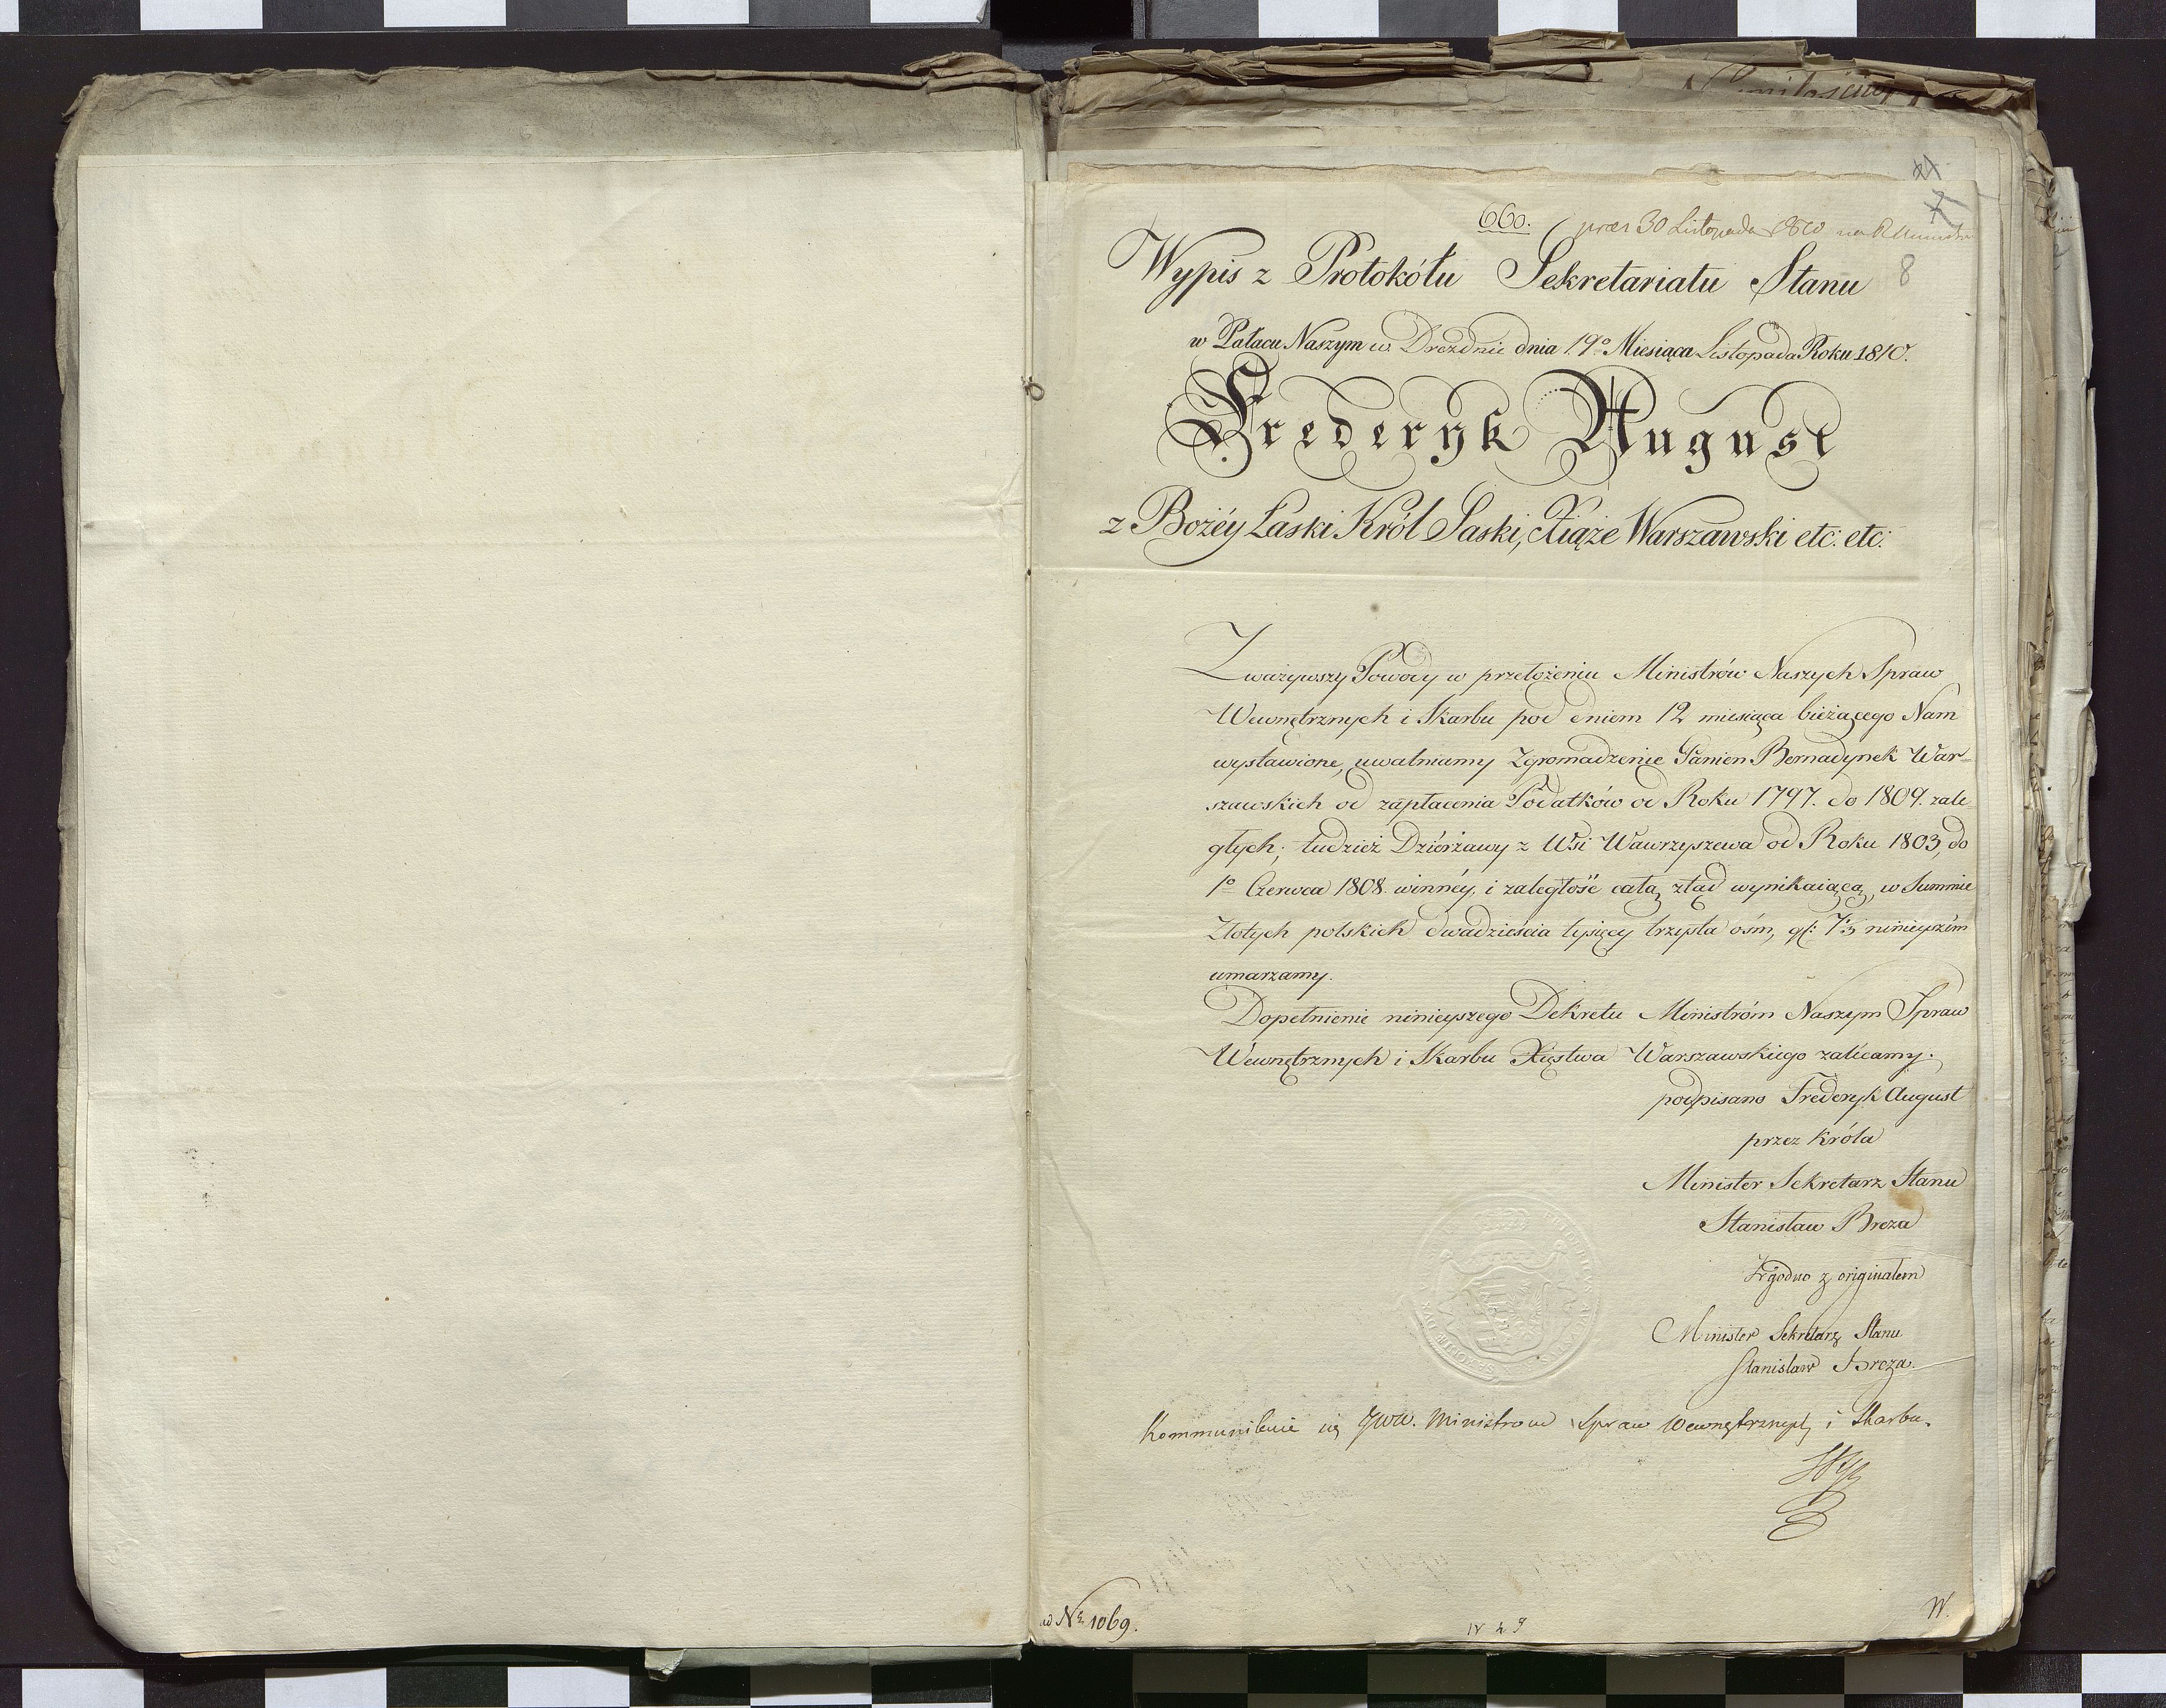 660. praes 30 Listopada 1810
Wypis z Protokółu Sekretariatu Stanu
8
w Pałacu Naszym w Dreźdnie dnia 19º Miesiąca Listopada Roku 1810.
Frederyk August
z Bożéy Łaski Król Saski, Xiąże Warszawski etc: etc:
Zważywszy Powody w przełożeniu Ministrów Naszych Spraw
Wewnętrznych i Skarbu pod dniem 12 miesiąca bieżącego Nam
wystawione, uwalniamy Zgromadzenie Panien Bernadynek War-
szawskich od zapłacenia Podatków od Roku 1797. do 1809. zale-
głych; tudzież Dzierżawy z Wsi Wawrzyszewa od Roku 1803, do
1º Czerwca 1808. winnéy, i zaległość całą ztąd wynikaiącą, w Summie
Złotych polskich dwadzieścia tysięcy trzysta ośm, gr: 7⅓ ninieyszém
umarzamy.
Dopełnienie ninieyszego Dekretu Ministróm Naszym Spraw
Wewnętrznych i Skarbu Xięstwa Warszawskiego zalecamy.
podpisano Frederyk August
przez Króla
Minister Sekretarz Stanu
Stanisław Breza
Zgodno z originałem
Minister Sekretarz Stanu
Stanisław Breza.
Kommunikuie się JWW. Ministrom Spraw Wewnętrznych i Skarbu.
ad Nº 1069.
W.